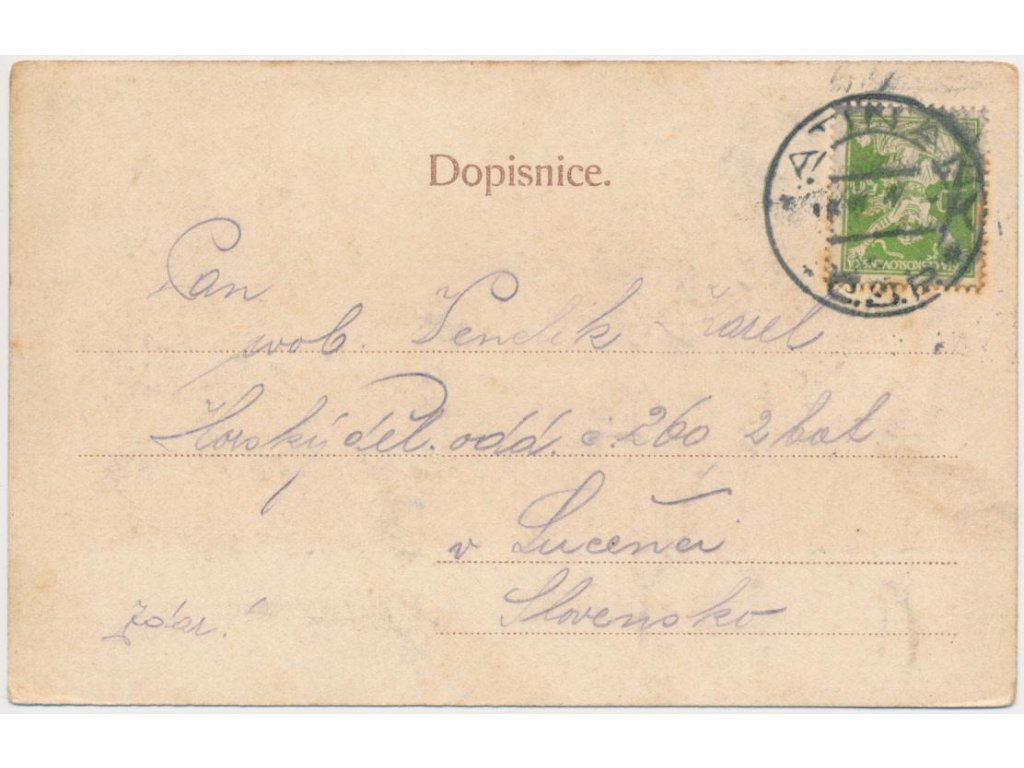 Dopisnice.
Pan
svob. Vendlík Karel
Horský děl. odd. č. 260 2 bat
v Lučenci
Slovensko
Zdar.
Č.S.P.